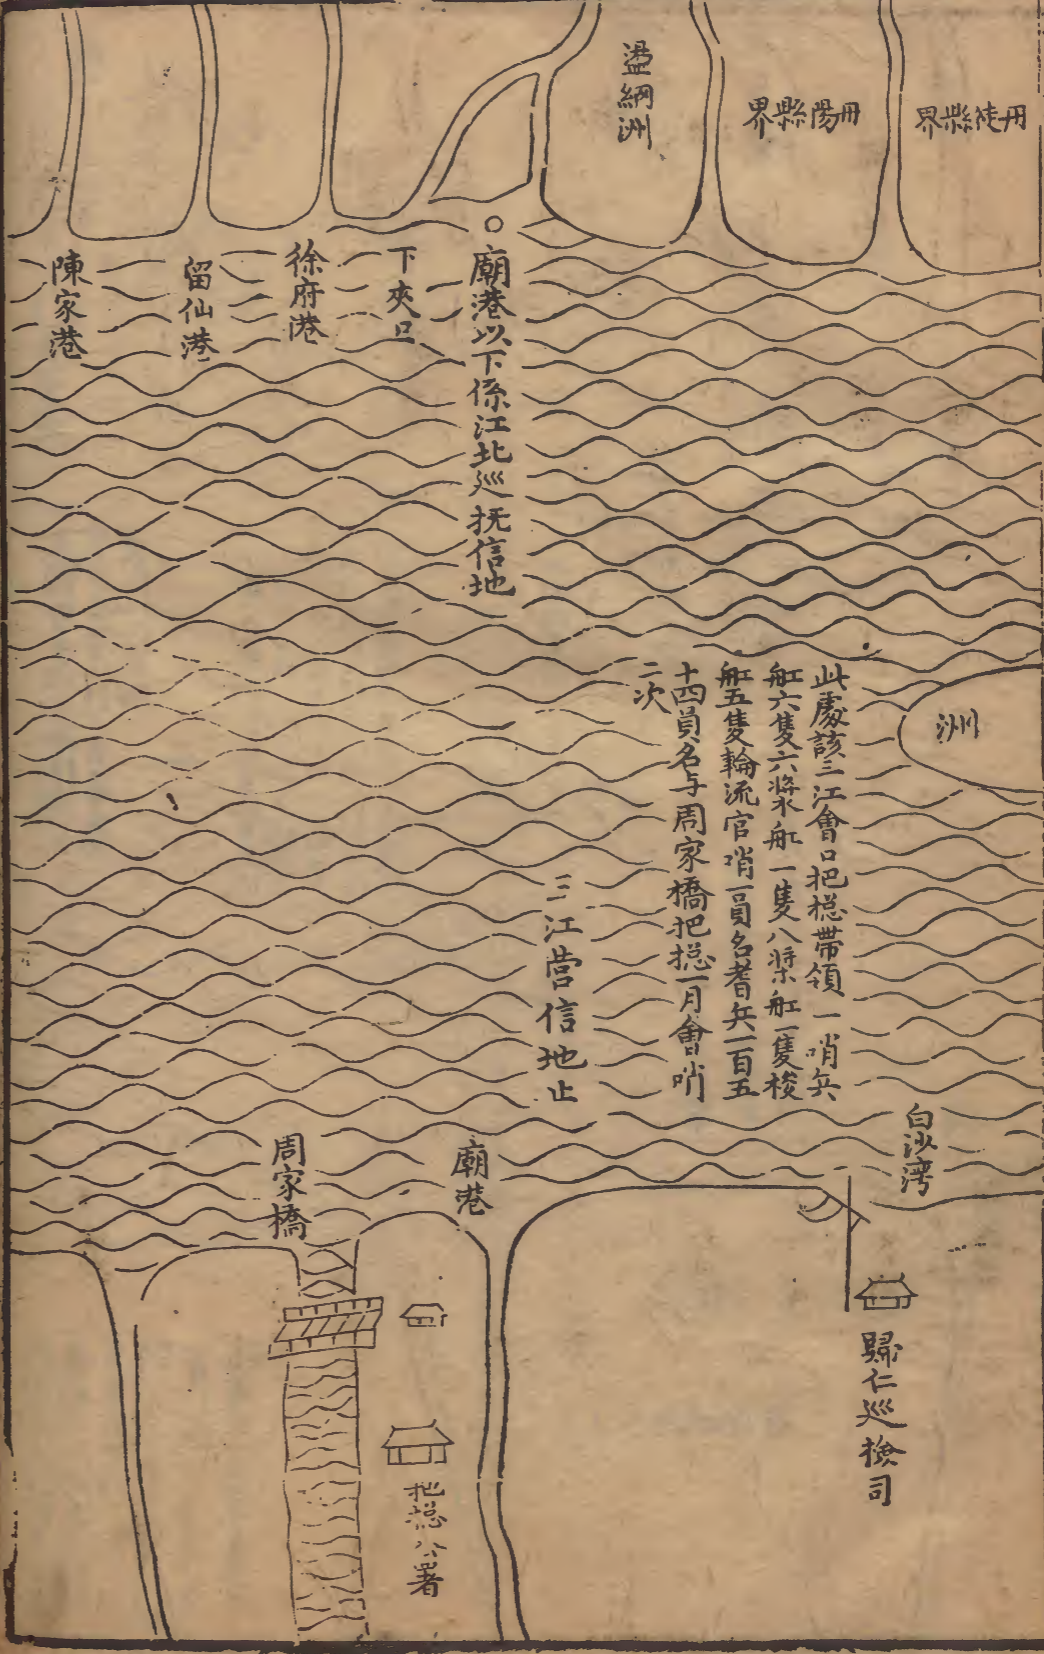 丹徒縣界
丹陽縣界
盪網洲
廟港以下係江北巡抚信地
下夾口
徐府港
留仙港
陳家港
洲
此處該三江會口把捴帶領一哨兵
舡六隻六槳舡一隻八槳舡一隻梭
舡五隻輪流官哨一員名耆兵一百五
十四員名与周家橋把捴一月會哨
二次
三江营信地止
白沙湾
廟港
周家橋
歸仁巡檢司
把捴公署